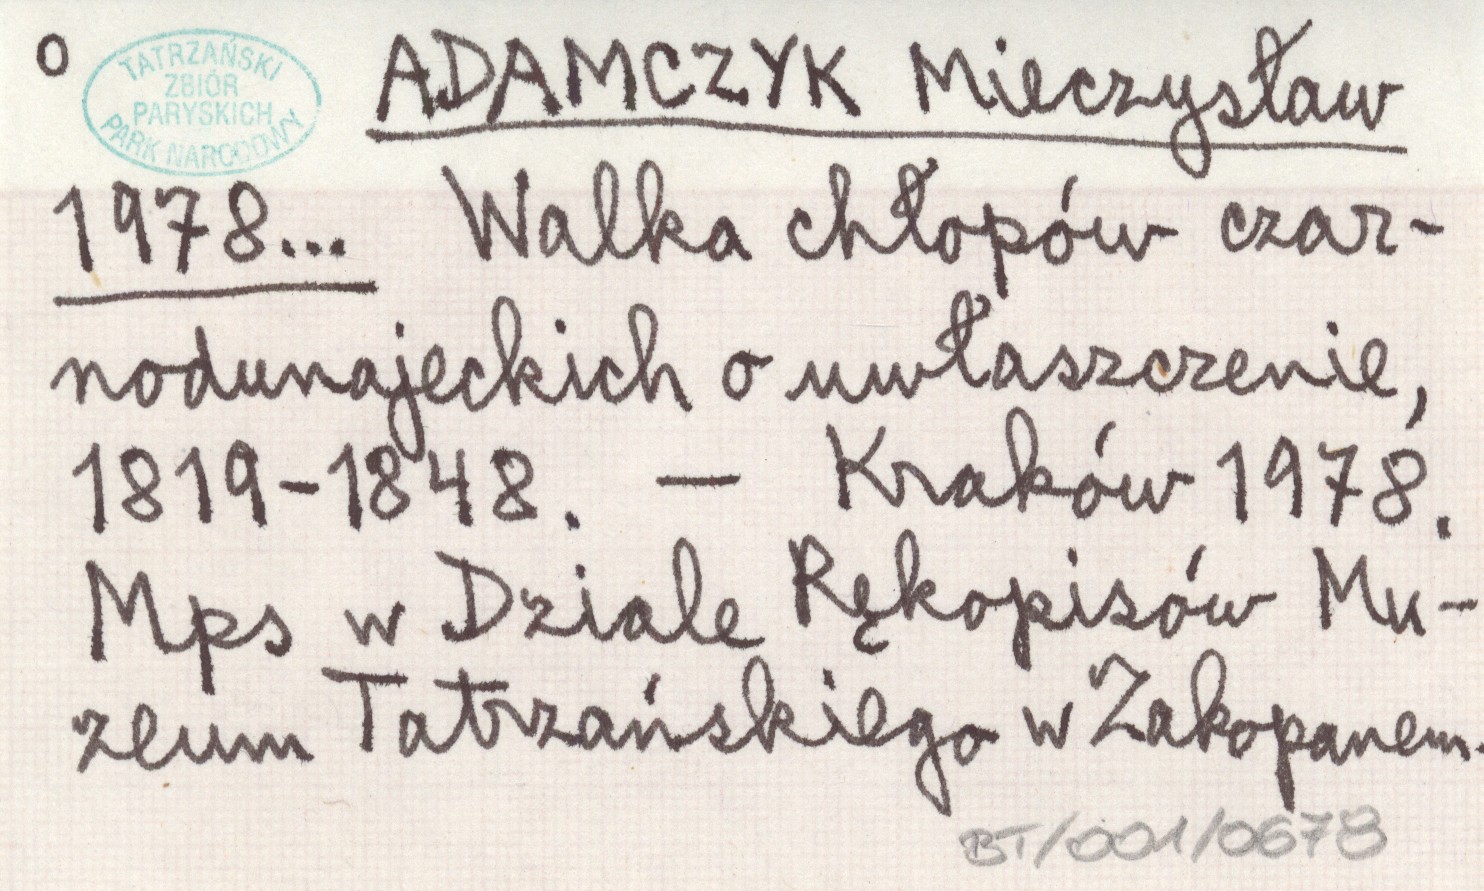 o ADAMCZYK Mieczysław
TATRZAŃSKI
ZBIÓR
PARYSKICH
PARK NARODOWY
1978... Walka chłopów czar-
nodunajeckich o uwłaszczenie,
1819-1848. — Kraków 1978.
Mps w Dziale Rękopisów Mu-
zeum Tatrzańskiego w Zakopanem.
BT/001/0678